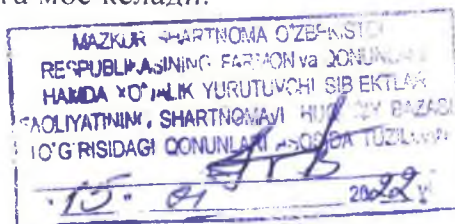 та мос келади.
MAZKUR SHARTNOMA O'ZBEKISTON
RESPUBLIKASINING FARMON va QONUNLARI
HAMDA XO'JALIK YURUTUVCHI SUB'EKTLAR
FAOLIYATINING SHARTNOMAVIY HUQUQIY BAZASI
TO'G'RISIDAGI QONUNLARI ASOSIDA TUZILGAN
"15" 01 2022 y